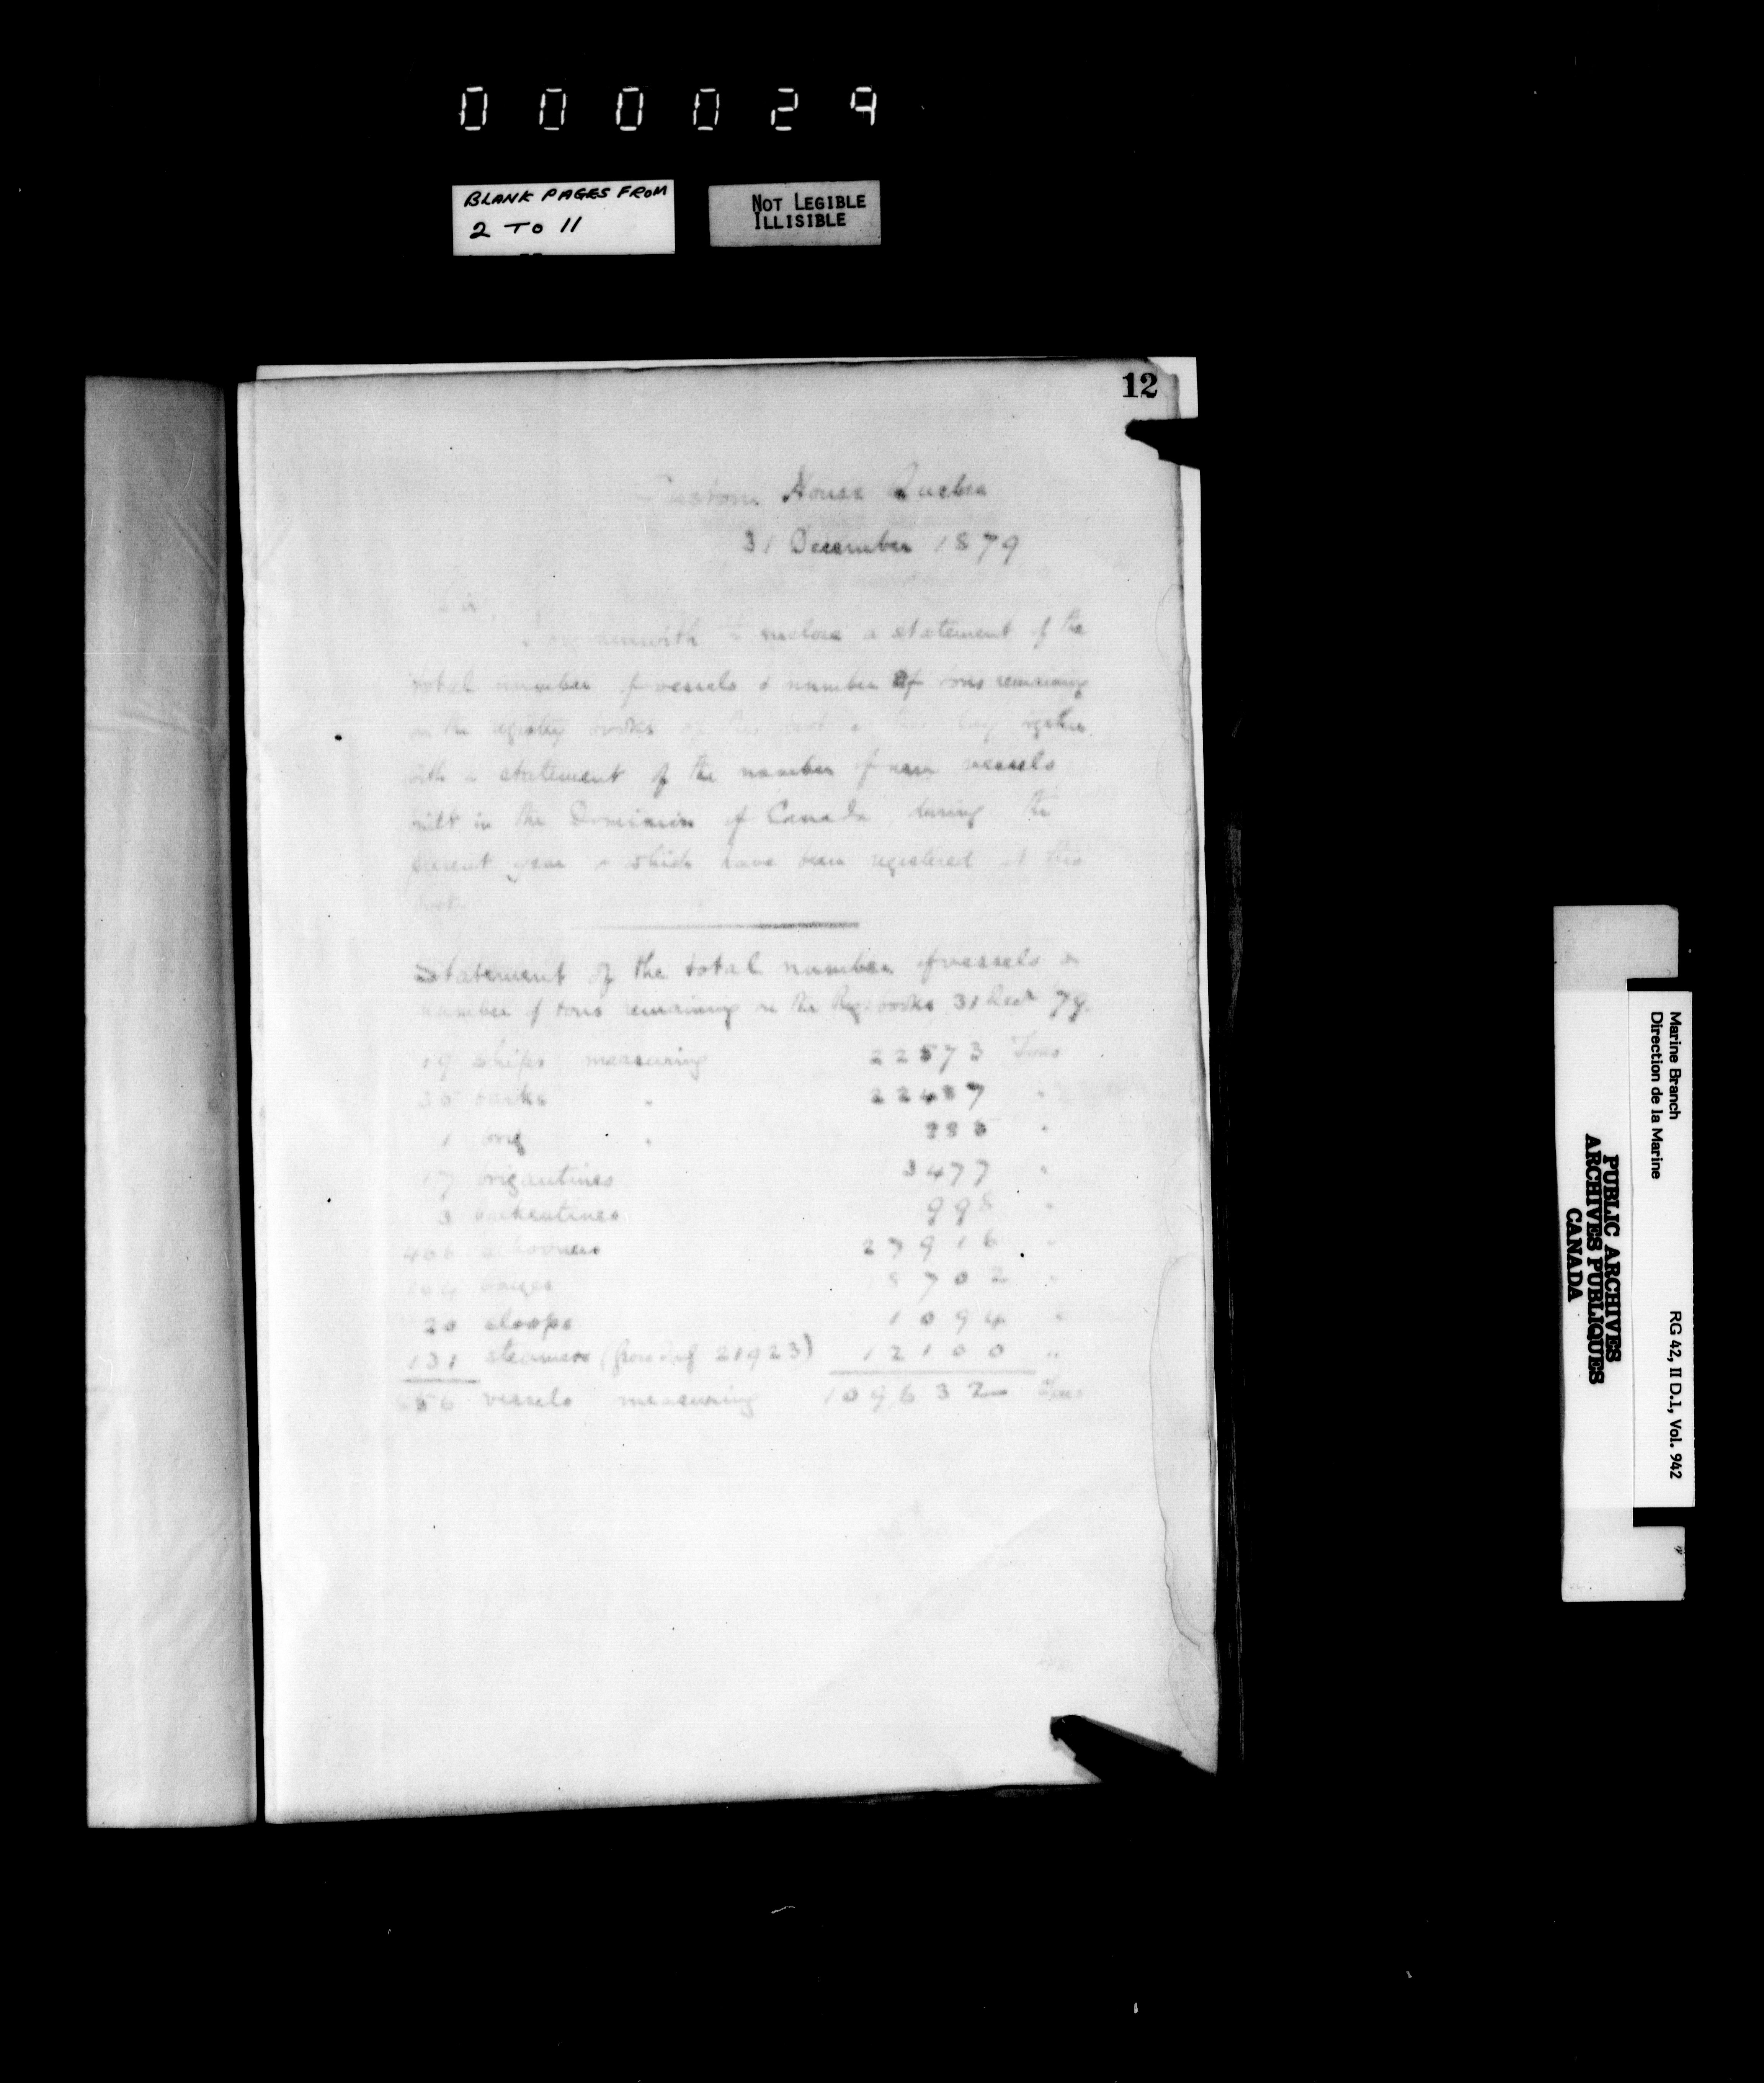 000029
BLANK PAGES FROM
2 TO 11
NOT LEGIBLE
ILLISIBLE
12
Custom House Quebec
31 December 1879
enclose a statement of the
total number of vessels & number of tons remaining
on the registry books of this
with a statement of the number of new vessels
built in the Dominion of Canada, during the
present year & which have been registered at this
port.
Statement of the total number of vessels &
number of tons remaining on the Reg: books 31 Decr 79.
19 ships measuring 22573 Tons
barks " 22487 "
1 brig " "
17 brigantines 3477 "
3 barkentines 998 "
schooners 27916 "
barges 8702 "
20 sloops 1094 "
131 steamers 21923) 12100 "
vessels measuring 109632 Tons
Marine Branch
Direction de la Marine
RG 42, II D.1, Vol. 942
PUBLIC ARCHIVES
ARCHIVES PUBLIQUES
CANADA